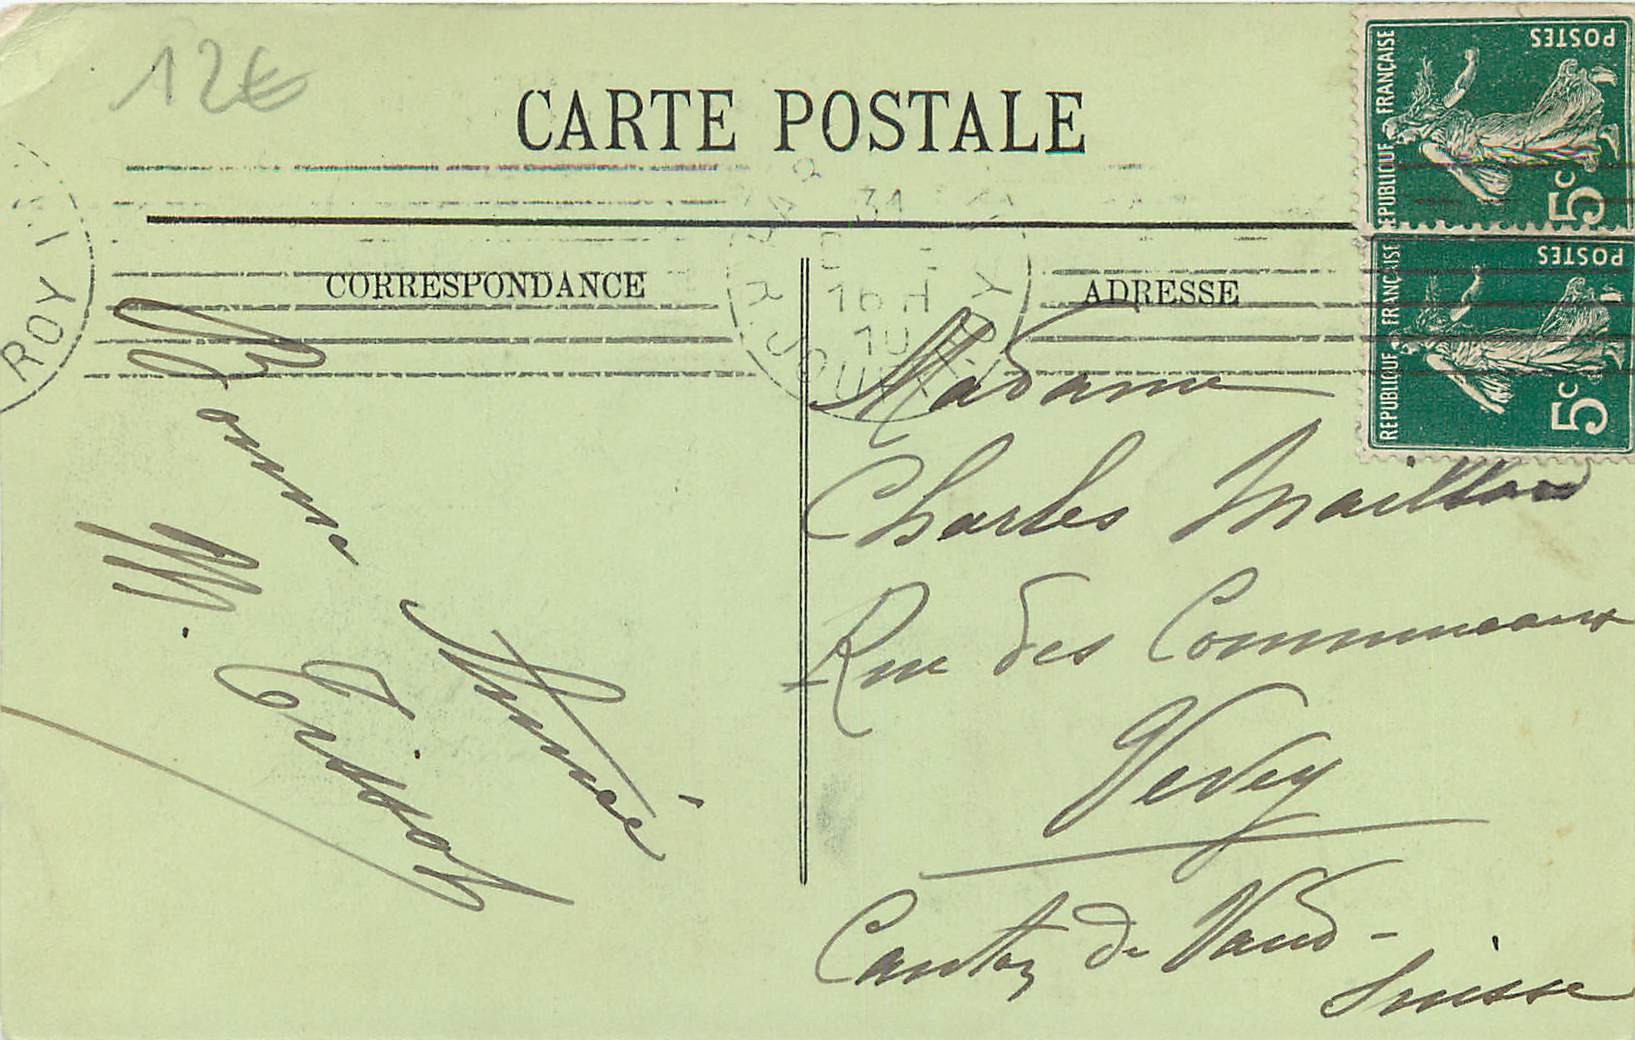 12€
CARTE POSTALE
CORRESPONDANCE
ADRESSE
POSTES
REPUBLIQUE FRANÇAISE
5c
POSTES
REPUBLIQUE FRANÇAISE
5c
ROY
31
16 H
10
Bonne Année
M. Tissot
Madame
Charles Maillard
Rue des Communaux
Vevey
Canton de Vaud -
Suisse